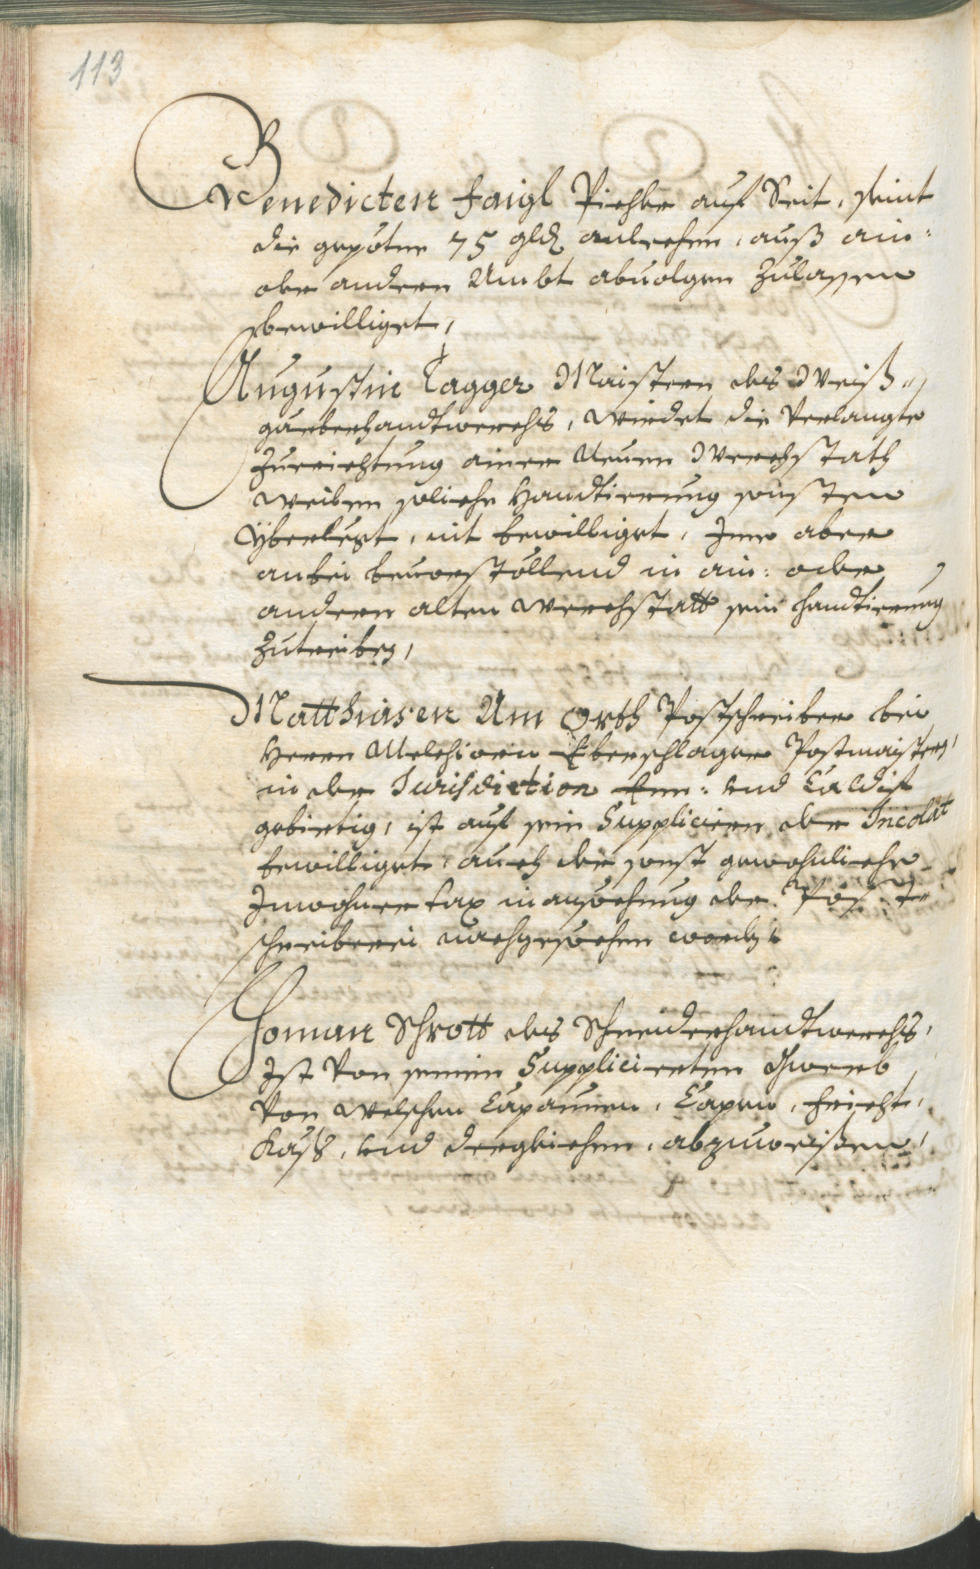 113
Benedicten Faigl Pichler auf Seit, seint
die gepötne 75 gld anlechen, auß ain:
oder andern Ambt abuolgen zulassen
bewilliget,
Augustin Tagger Maistern des Weiß¬
gärberhandtwerchs, würdet die verlangte
Zuerichtung ainer Neuen Werchstath
weilen solicher Handtierung sonsten
Yberlust, nit bewilliget, Ime aber
anbei beuorstöllend in ain: oder
andern alten Werchstatt sein handtierung
zutreiben,
Matthiasen Am Orth Postschreiber bei
Herrn Melchiorn Eberschlager Postmaistern,
in der Jurisdiction Enn: und Caldif
gebirtig, ist auf sein Suppliciern der Incolat
bewilliget, auch die sonst gewohnliche
Inwohner tax in ansechung der Post¬
schreiberei nachgesechen worden
Toman Schrott des Schneiderhandtwerchs,
Ist von seinen Supplicierten Gwerb
von welschen Capaunen, Capern, Fricht,
Käß, und dergleichen, abzuweißen,